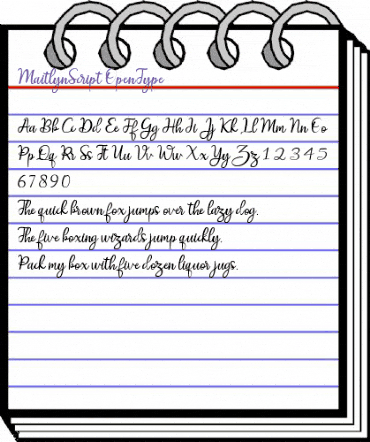 MaitlynScript OpenType
Aa Bb Cc Dd Ee Ff Gg Hh Ii Jj Kk Ll Mm Nn Oo
Pp Qq Rr Ss Tt Uu Vv Ww Xx Yy Zz 1 2 3 4 5
6 7 8 9 0
The quick brown fox jumps over the lazy dog.
The five boxing wizards jump quickly.
Pack my box with five dozen liquor jugs.